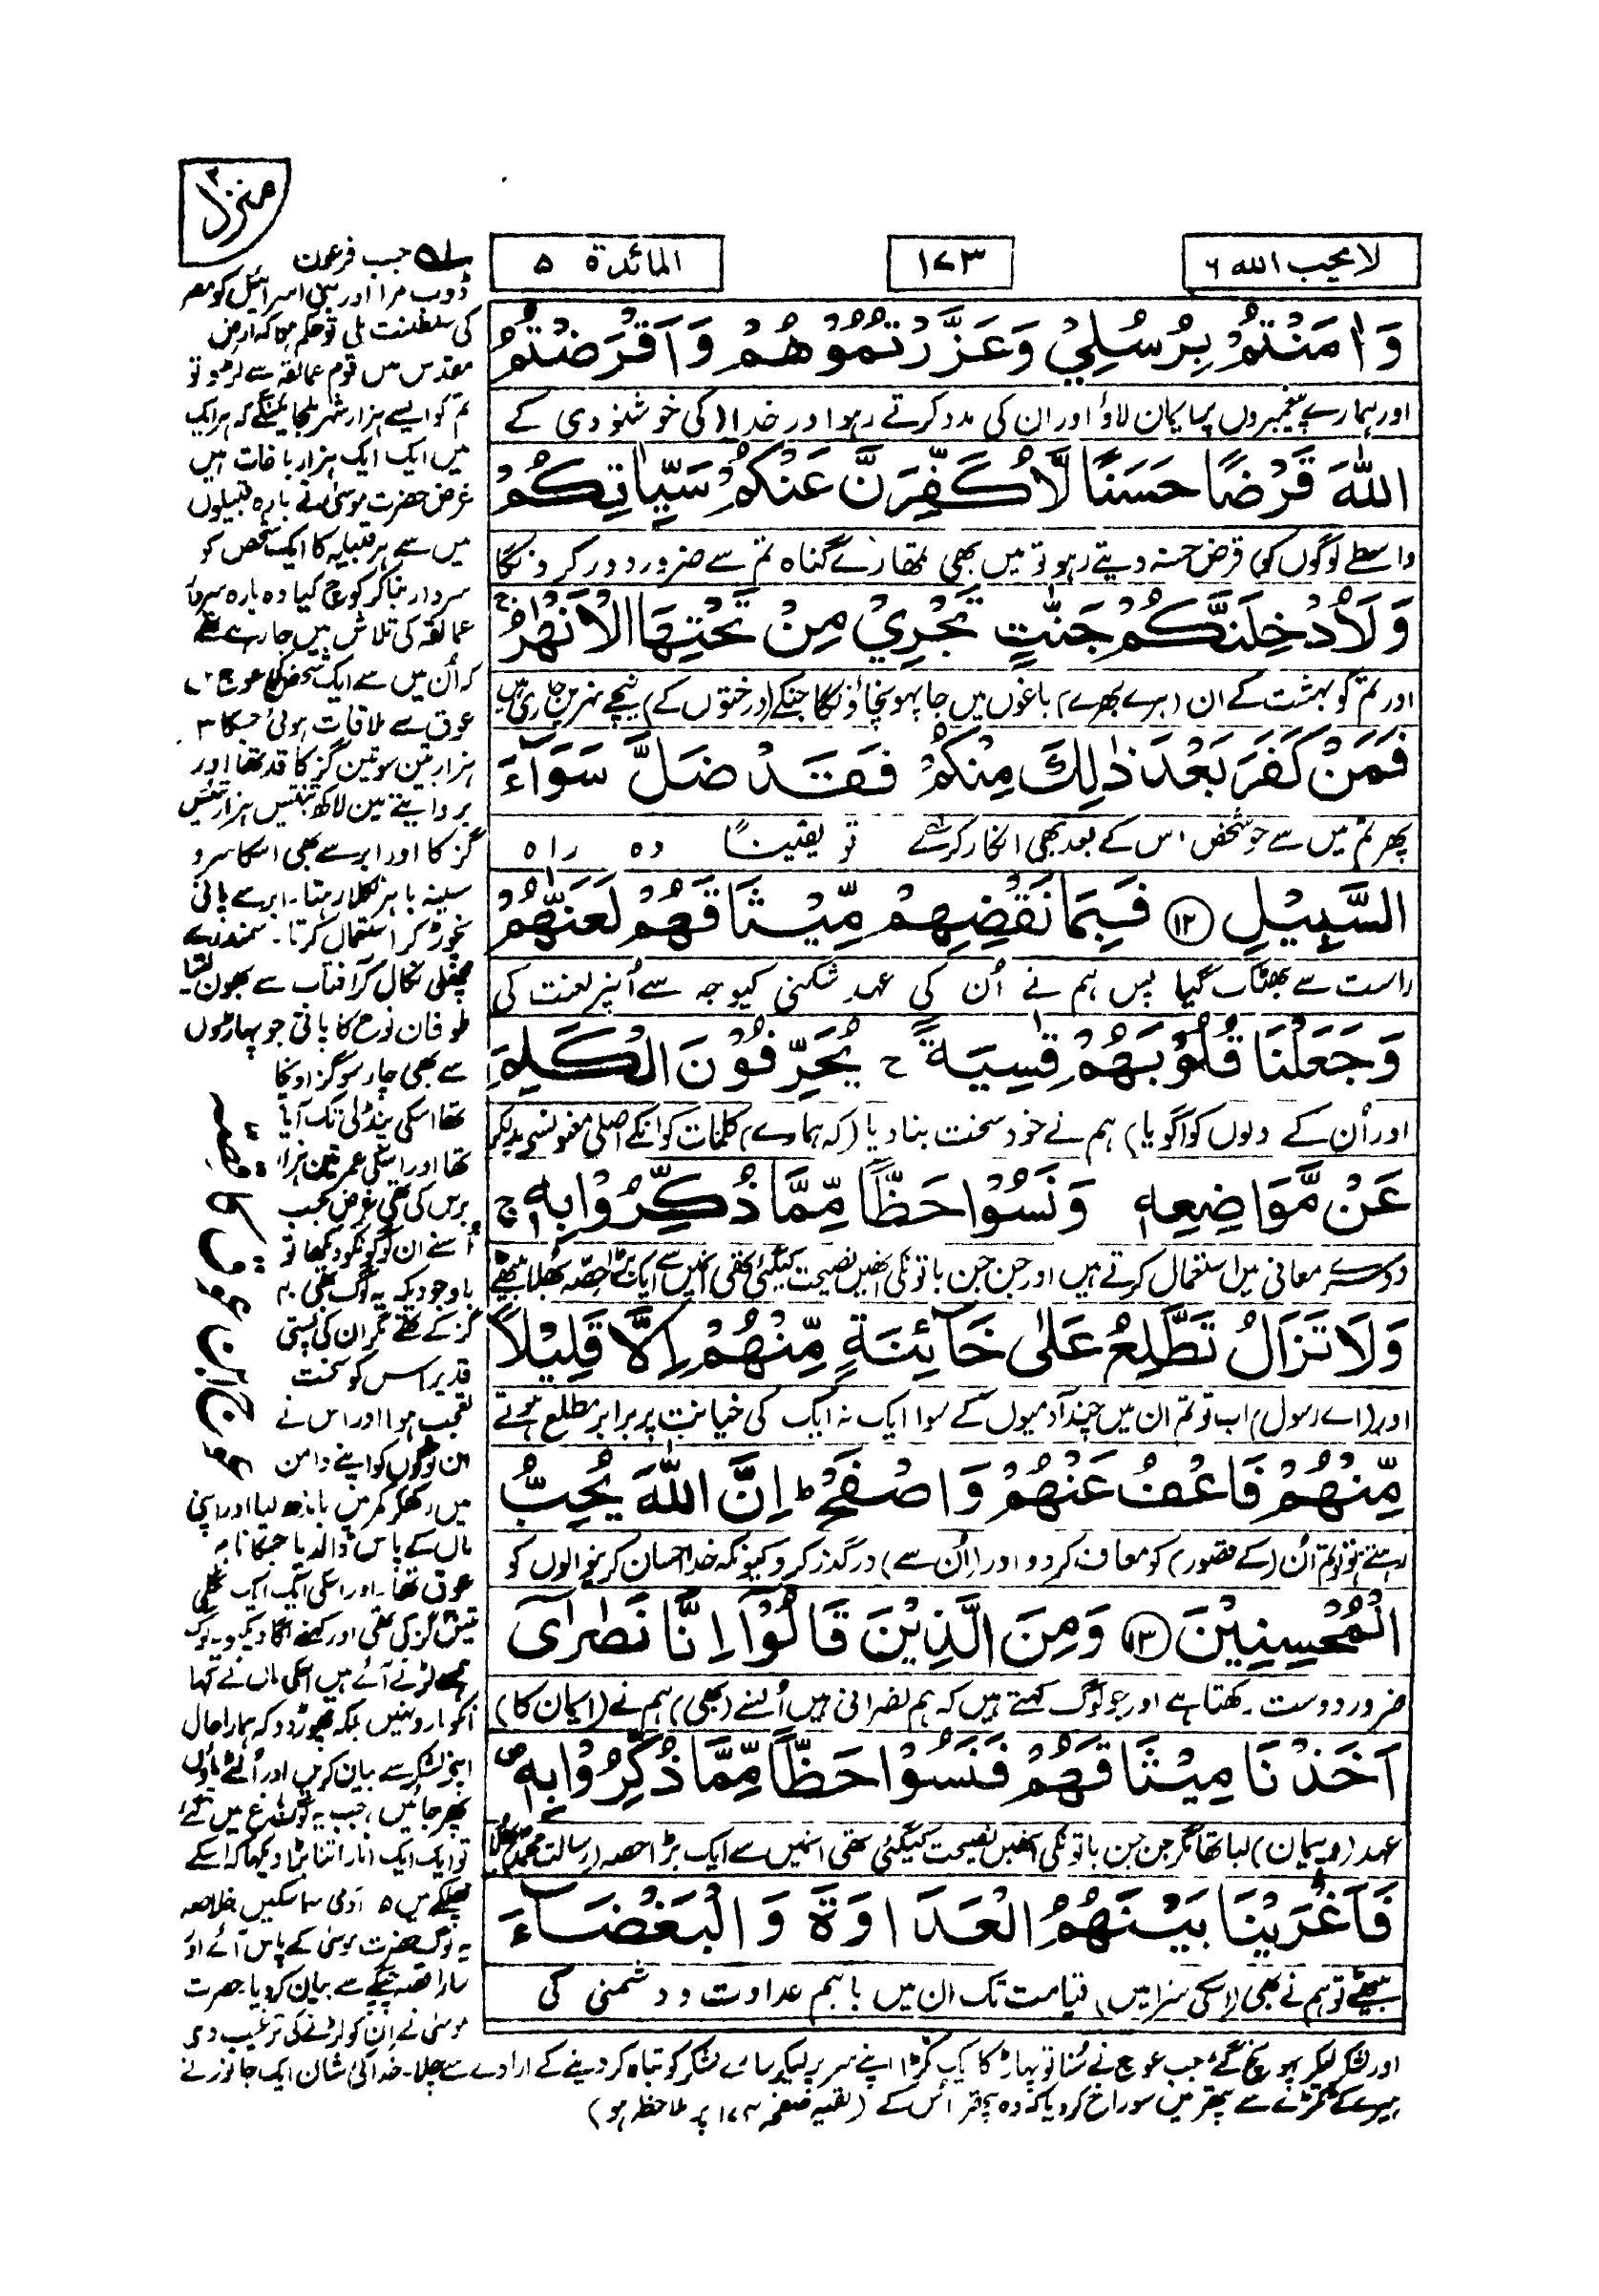 لا یحب اللہ ۶
۱۷۳
المائدۃ ۵
منزل ۲
وَاٰمَنْتُمْ بِرُسُلِیْ وَعَزَّرْتُمُوْهُمْ وَاَقْرَضْتُمُ
اور ہمارے پیغمبروں پر ایمان لاؤ اور ان کی مدد کرتے رہو اور خدا کی خوشنودی کے
اللّٰهَ قَرْضًا حَسَنًا لَّاُكَفِّرَنَّ عَنْكُمْ سَیِّاٰتِكُمْ
واسطے لوگوں کو قرض حسنہ دیتے رہو تو میں بھی تمھارے گناہ تم سے ضرور دور کر دونگا
وَلَاُدْخِلَنَّكُمْ جَنّٰتٍ تَجْرِیْ مِنْ تَحْتِهَا الْاَنْهٰرُ ۚ
اور تم کو بہشت کے ان (ہرے بھرے) باغوں میں جا پہونچاؤنگا جنکے (درختوں کے) نیچے نہریں جاری ہیں
فَمَنْ كَفَرَ بَعْدَ ذٰلِكَ مِنْكُمْ فَقَدْ ضَلَّ سَوَآءَ
پھر تم میں سے جو شخص اس کے بعد بھی انکار کرے تو یقیناً وہ راہ
السَّبِیْلِ ۝۱۲ فَبِمَا نَقْضِهِمْ مِّیْثَاقَهُمْ لَعَنّٰهُمْ
راست سے بھٹک گیا پس ہم نے اُن کی عہد شکنی کیوجہ سے اُنپر لعنت کی
وَجَعَلْنَا قُلُوْبَهُمْ قٰسِیَةً ۚ یُحَرِّفُوْنَ الْكَلِمَ
اور اُن کے دلوں کو (گویا) ہم نے خود سخت بنا دیا (کہ ہمارے) کلمات کو انکے اصلی معنوں سے بدلکر
عَنْ مَّوَاضِعِهٖ وَنَسُوْا حَظًّا مِّمَّا ذُكِّرُوْا بِهٖ ۚ
دوسرے معانی میں استعمال کرتے ہیں اور جن جن باتونکی انھیں نصیحت کیگئی تھی انمیں سے ایک بڑا حصہ بھلا بیٹھے
وَلَا تَزَالُ تَطَّلِعُ عَلٰی خَآئِنَةٍ مِّنْهُمْ اِلَّا قَلِیْلًا
اور (اے رسول) اب تو تم ان میں چند آدمیوں کے سوا ایک نہ ایک کی خیانت پر برابر مطلع ہوتے
مِّنْهُمْ فَاعْفُ عَنْهُمْ وَاصْفَحْ ؕ اِنَّ اللّٰهَ یُحِبُّ
رہتے ہو تو تم اُن (کے قصور) کو معاف کردو اور (اُن سے) درگذر کرو کیونکہ خدا احسان کرنیوالوں کو
الْمُحْسِنِیْنَ ۝۱۳ وَمِنَ الَّذِیْنَ قَالُوْۤا اِنَّا نَصٰرٰۤی
ضرور دوست رکھتا ہے اور جو لوگ کہتے ہیں کہ ہم نصرانی ہیں اُنسے (بھی) ہم نے (ایمان کا)
اَخَذْنَا مِیْثَاقَهُمْ فَنَسُوْا حَظًّا مِّمَّا ذُكِّرُوْا بِهٖ ۪
عہد (و پیمان) لیا تھا مگر جن جن باتونکی انھیں نصیحت کیگئی تھی انمیں سے ایک بڑا حصہ (رسالت محمدؐ) بھلا
فَاَغْرَیْنَا بَیْنَهُمُ الْعَدَاوَةَ وَالْبَغْضَآءَ
بیٹھے تو ہم نے بھی (اسکی سزا میں) قیامت تک ان میں باہم عداوت و دشمنی کی
جب فرعون
ڈوب مرا اور بنی اسرائیل کو مصر
کی سلطنت ملی تو حکم ہوا کہ ارض
مقدس میں قوم عمالقہ سے لڑو تو
تم کو ایسے ہزار شہر ملجائینگے کہ ہر ایک
میں ایک ایک ہزار باغات ہیں
غرض حضرت موسیٰ نے بارہ قبیلوں
میں سے ہر قبیلہ کا ایک شخص کو
سردار بنا کر کوچ کیا وہ بارہ سردار
عمالقہ کی تلاش میں جا رہے تھے
کہ اُن میں سے ایک شخص عوج بن
عوق سے ملاقات ہوئی جسکا ۳
ہزار تین سو تین گز کا قد تھا اور
گز کا اور ابر سے بھی اسکا سر و
سینہ باہر نکلا رہتا۔ ابر سے پانی
نچوڑ کر استعمال کرتا۔ سمندر سے
مچھلی نکال کر آفتاب سے بھون لیتا۔
طوفان نوح کا پانی جو پہاڑوں
سے بھی چار سو گز اونچا
تھا اسکی پنڈلی تک آیا
تھا اور اسکی عمر تین ہزار
برس کی تھی غرض جب
اُسنے ان لوگونکو دیکھا تو
باوجودیکہ یہ لوگ بھی ۴۰
گز کے تھے مگر ان کی پستی
قد پر اس کو سخت
تعجب ہوا اور اس نے
ان لوگوں کو اپنے دامن
میں رکھکر کمر میں باندھ لیا اور اپنی
ماں کے پاس ڈالدیا جسکا نام
عوق تھا۔ اور اسکی ایک ایک انگلی
تیس گز کی تھی اور کہنے لگا دیکھو یہ لوگ
مجھسے لڑنے آئے ہیں اسکی ماں نے کہا
انکو مارو نہیں بلکہ چھوڑ دو کہ ہمارا حال
اپنے لشکر سے بیان کریں اور اُلٹے پاؤں
پھر جائیں، جب یہ لوگ باغ میں گئے
تو ایک ایک انار اتنا بڑا دیکھا کہ اسکے
چھلکے میں ۵ آدمی سما سکیں خلاصہ
یہ لوگ حضرت موسیٰ کے پاس آئے اور
سارا قصہ چپکے سے بیان کر دیا۔ حضرت
موسیٰ نے ان کو لڑنے کی ترغیب دی
عوج ابن عوق کا قصہ
اور لشکر لیکر پہونچ گئے، جب عوج نے سُنا تو پہاڑ کا ایک ٹکڑا اپنے سر پر لیکر سارے لشکر کو تباہ کر دینے کے ارادے سے چلا۔ خدا کی شان ایک جانور نے
ہیرے کے ٹکڑے سے پتھر میں سوراخ کر دیا کہ وہ پتھر اُس کے (بقیہ صفحہ ۱۷۴ پر ملاحظہ ہو)